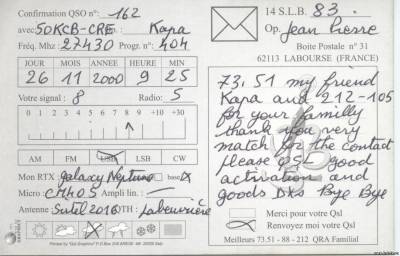 Confirmation QSO n°: 162
avec: 50KCB-CRE En: Kapa
Fréq. Mhz: 27430 Progr. n°: 404
JOUR MOIS ANNEE HEURE MIN
26 11 2000 9 25
Votre signal: 8 Radio: 5
0 1 2 3 4 5 6 7 8 9 +10 +30
AM FM USB LSB CW
Mon RTX: galaxy Neptune base
Micro: CM40S Ampli lin.:
Antenne: Sirtel 2016 QTH: Labeuvrière
14 S.L.B. 83.
Op. Jean Pierre
Boite Postale n° 31
62113 LABOURSE (FRANCE)
73, 51 my friend
Kapa and 212-105
for your familly
thank you very
match for the contact
please QSL good
activation and
goods Dxs Bye Bye
Merci pour votre Qsl
Renvoyez moi votre Qsl
Meilleurs 73.51 - 88 - 212 QRA Familial